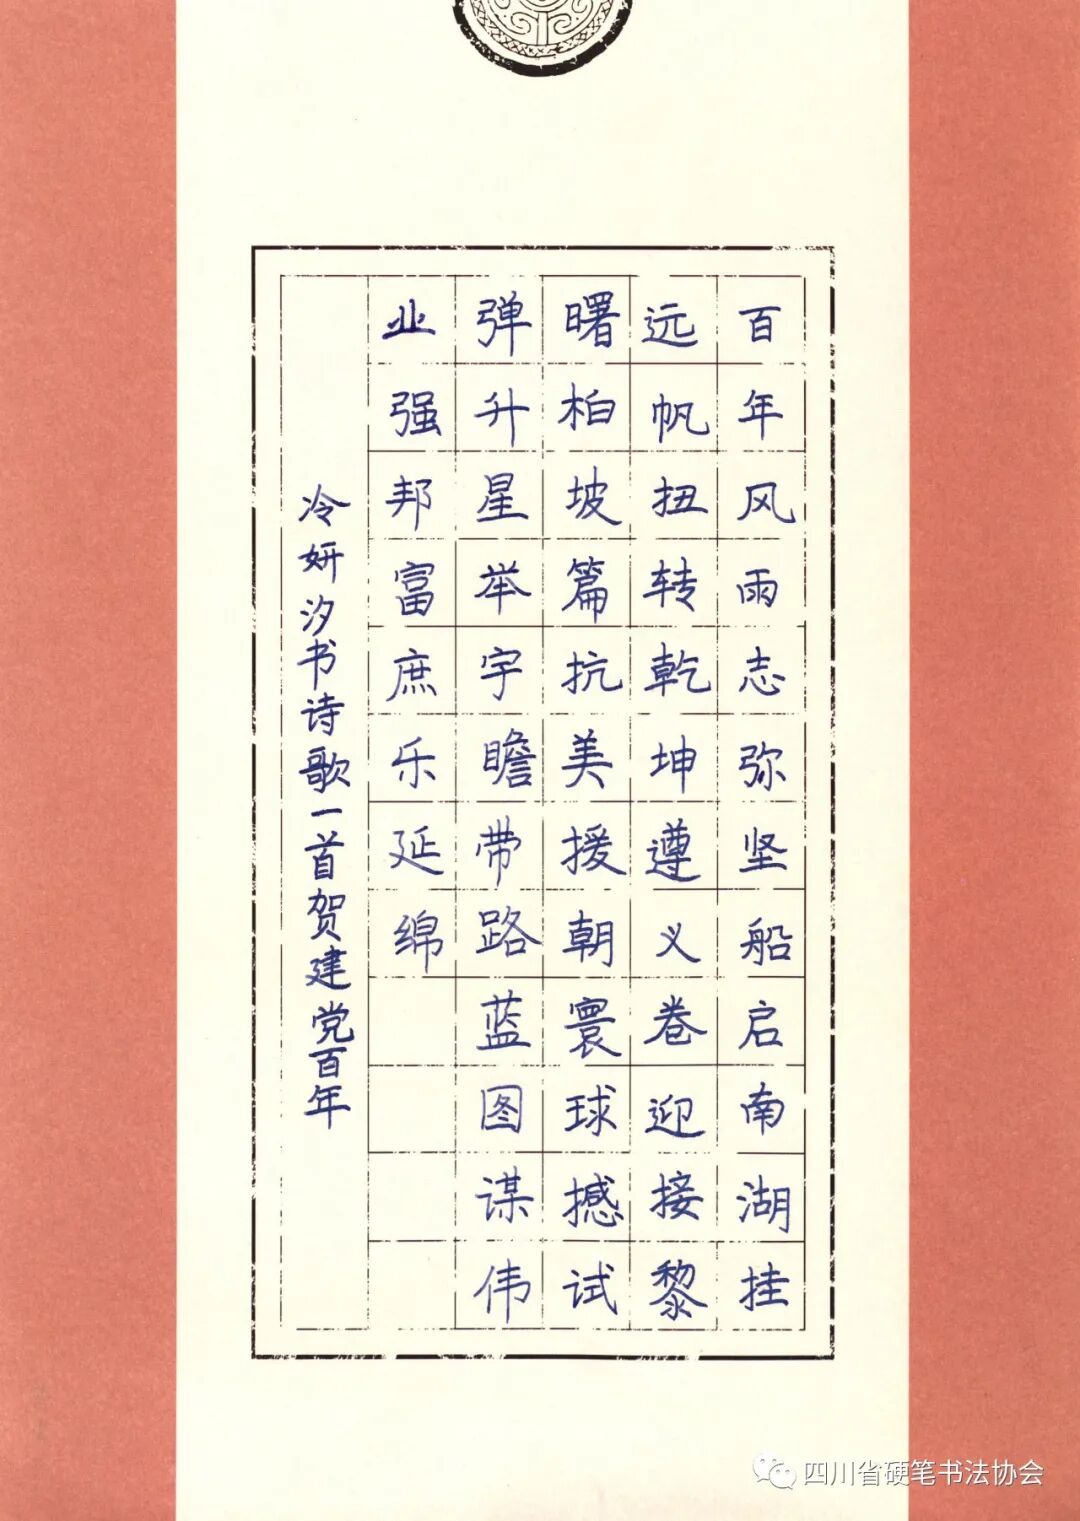 百年风雨志弥坚船启南湖挂
远帆扭转乾坤遵义卷迎接黎
曙柏坡篇抗美援朝寰球撼试
弹升星举宇瞻带路蓝图谋伟
业强邦富庶乐延绵
冷妍汐书诗歌一首贺建党百年
四川省硬笔书法协会